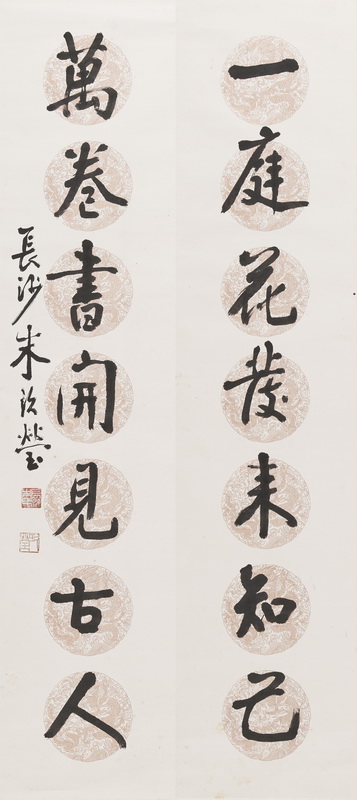 一庭花發来知己
萬卷書開見古人
長沙朱玖瑩